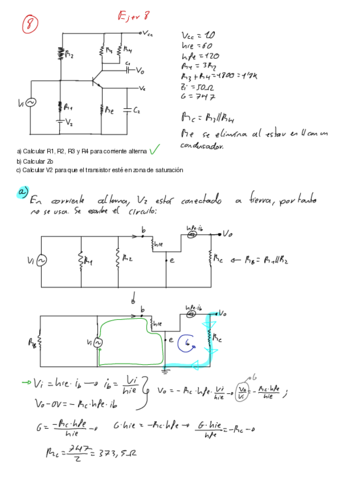 8
Ejer 8
Vcc
R2
R3
R4
C1
Vo
Vi
R1
Re
C2
V2
Vcc = 10
hie = 60
hfe = 120
R1 = 3R2
R3 + R4 = 1800 = 1'8K
Zi = 50Ω
G = 747
Rc = R3//R4
Re se elimina al estar en // con un condensador.
a) Calcular R1, R2, R3 y R4 para corriente alterna ✓
b) Calcular Zb
c) Calcular V2 para que el transistor esté en zona de saturación
a)
En corriente alterna, V2 estará conectado a tierra, por tanto
no se usa. Se cambia el circuito:
b
hfe·ib
Vo
hie
e
Vi
R1
R2
Rc
← RB = R1//R2
b
hfe·ib
Vo
hie
e
RB
Vi
Rc
→ Vi = hie·ib → ib = Vi/hie
Vo - 0V = -Rc·hfe·ib
Vo = -Rc·hfe·Vi/hie → Vo/Vi = -Rc·hfe/hie ;
G
G = -Rc·hfe/hie → G·hie = -Rc·hfe → G·hie/hfe = -Rc →
Rc = 747/2 = 373,5Ω